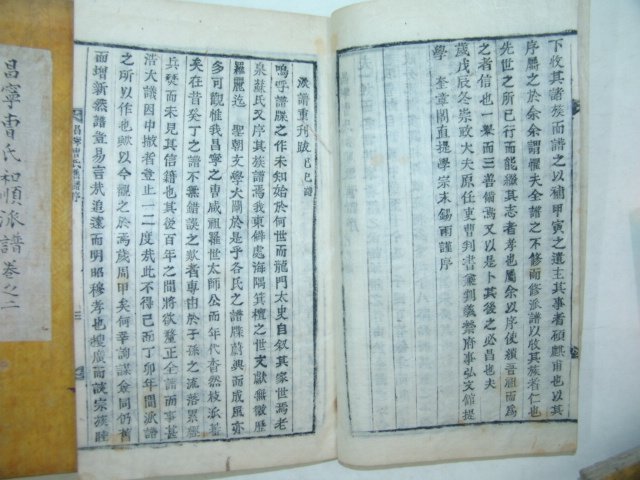 下收其諸族而譜之以補甲寅之遺主其事者碩麒甫也以其
序屬之於余余謂懼夫全譜之不修而修派譜以收其族者仁也
先世之所已行而能繼其志者孝也屬余以序使續音徽而爲
之者信也一擧而三善備焉又以是卜其後之必昌也夫
歲戊辰冬崇政大夫原任吏曹判書兼判義禁府事弘文館提
學 奎章閣直提學宗末錫雨謹序
派譜重刊跋 己巳譜
嗚乎譜牒之作未知始於何世而龍門太史自叙其家世焉老
泉蘇氏又序其族譜焉我東僻處海隅箕檀之世文獻無徵歷
羅麗迄 聖朝文學大闡於是乎各氏之譜牒蔚興而成風亦
多可觀惟我昌寧之曺咸祖羅世太師公而年代杳然枝派累經
矣在昔癸丁之譜不無斷文之歎者專由於子孫之流落
兵燹而未見其信籍也其後百年之間將欲釐正全譜而事甚
浩大議因中撤者豈止一二度哉此不得已而丁卯年間派譜
之所以作也歟以今觀之於焉歲周甲矣何幸詢謀僉同仍舊
而增新然譜豈易言哉追遠而明昭穆孝也續廣而談宗族睦
昌寧曺氏派譜序
昌寧曺氏和順派譜 卷之二